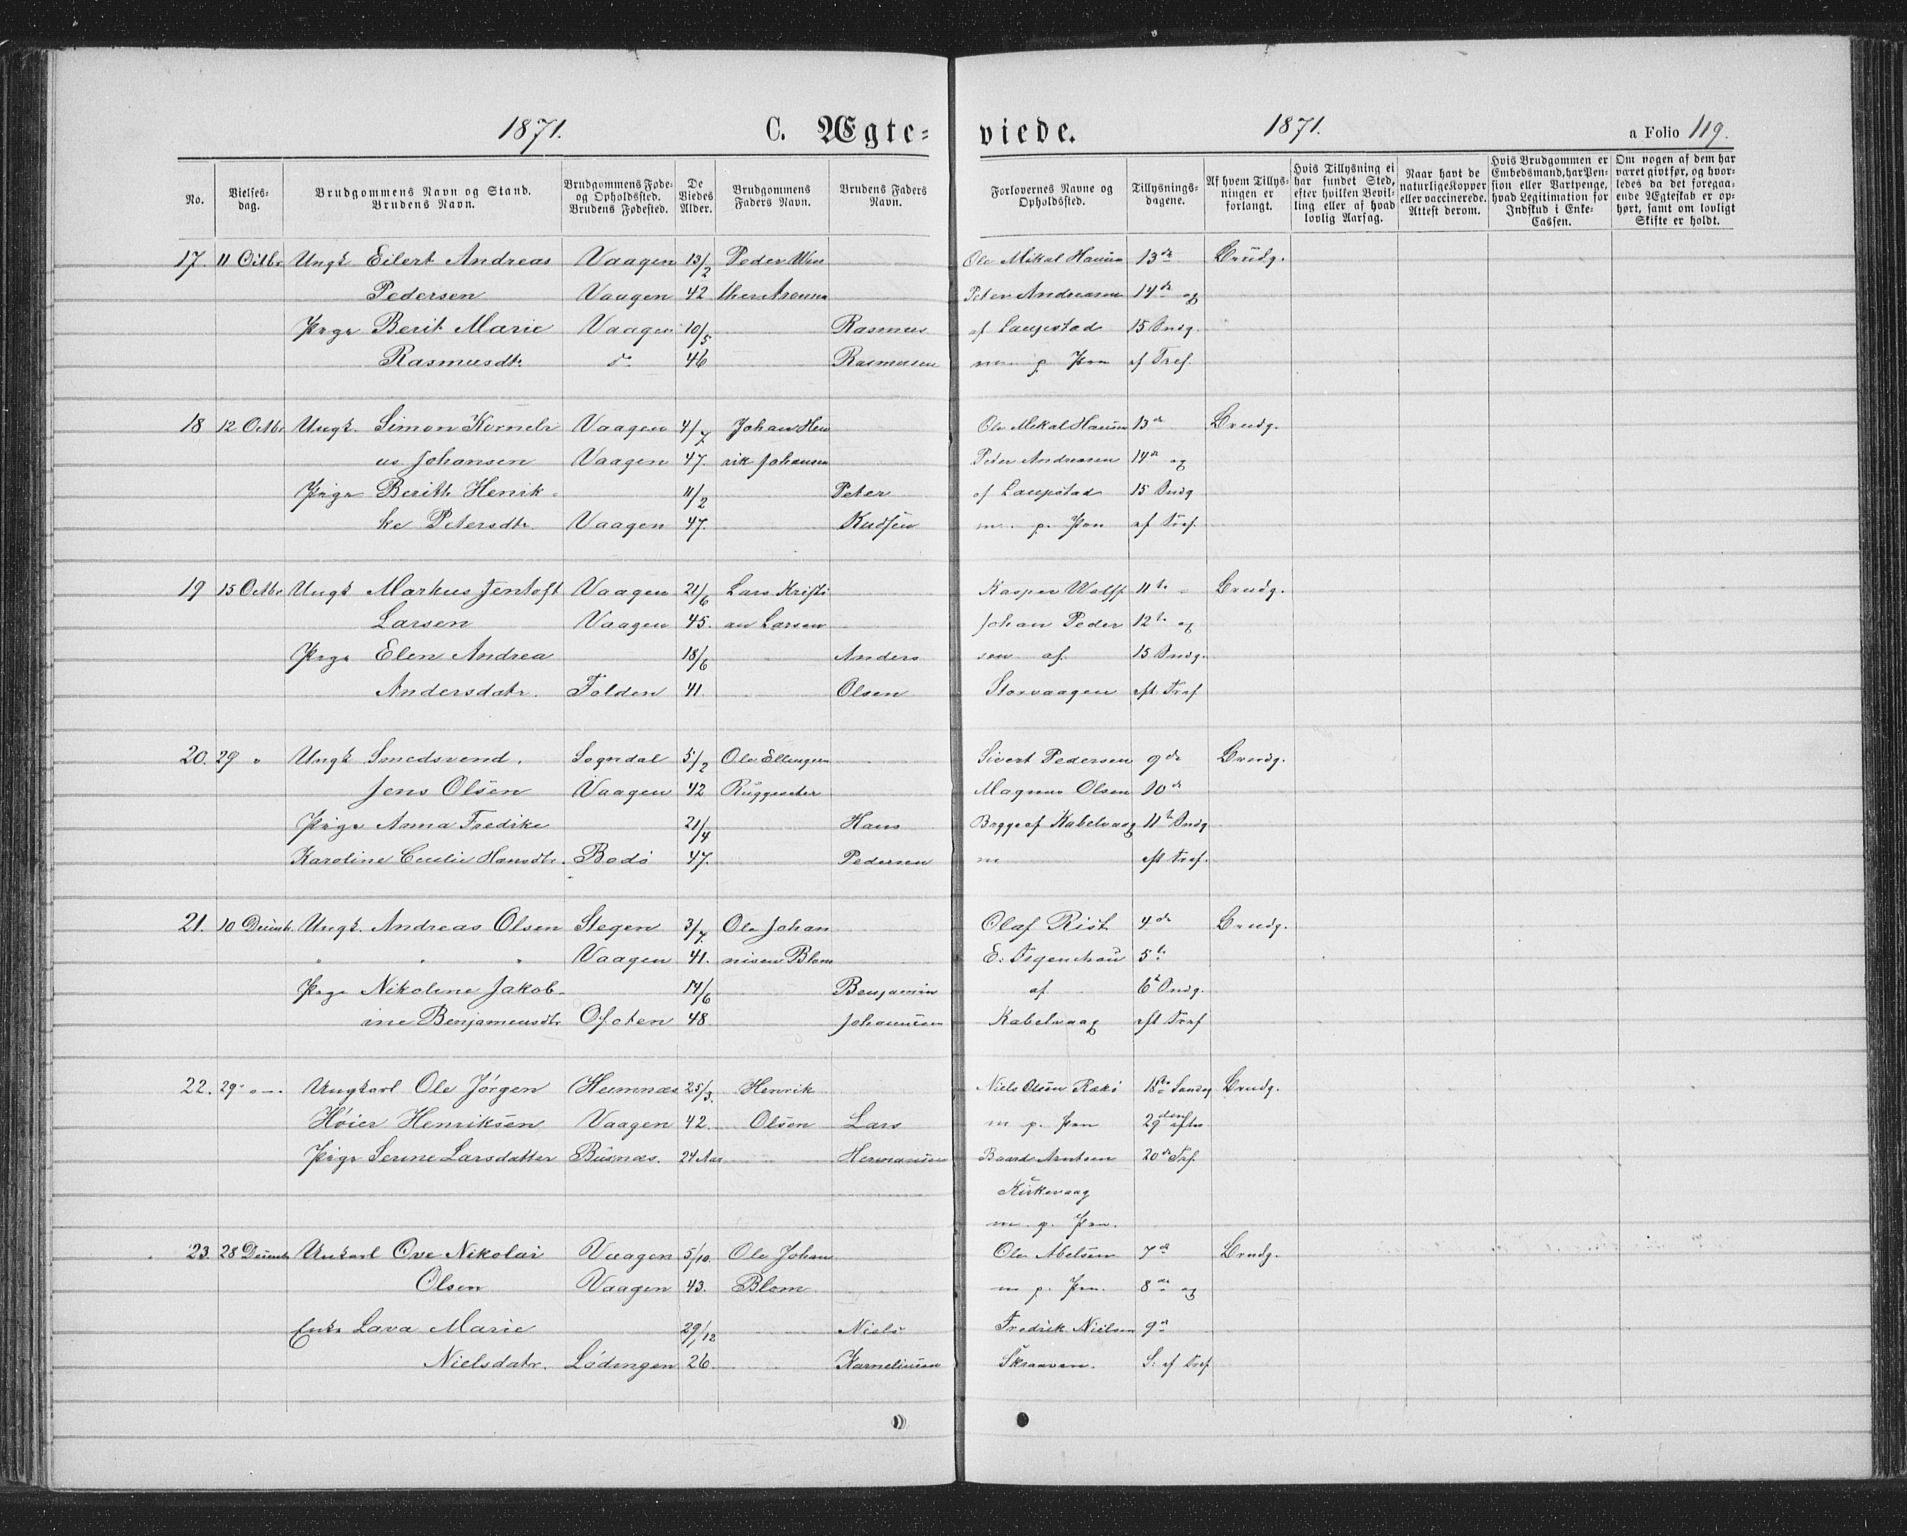 1871. C. Ægte= viede. 1871. a Folio 119.
No. Vielses-dag. Brudgommens Navn og Stand. Brudens Navn. Brudgommens Føde- og Opholdssted. Brudens Fødested. De Viedes Alder. Brudgommens Faders Navn. Brudens Faders Navn. Forlovernes Navne og Opholdssted. Tillysnings-dagene. Af hvem Tillysningen er forlangt. Hvis Tillysning ei har fundet Sted, efter hvilken Bevilling eller af hvad lovlig Aarsag. Naar havt de naturlige Kopper eller vaccinerede. Attest derom. Hvis Brudgommen er Embedsmand, har Pension eller Vartpenge, hvad Legitimation for Indskud i Enke-Cassen. Om nogen af dem har været gift før, og hvorledes da det foregaaende Ægteskab er ophørt, samt om lovligt Skifte er holdt.
17. 11 Octbr Ungk Eilert Andreas Vaagen 13/2 Peder Ole Mikal Hansen 13de Brudg.
Pedersen Vaagen 42 Peter Andreasen 14de og
Pige Berit Marie Vaagen 10/5 Rasmus af Laupstad 15 Søndg.
Rasmusdtr. do 46 Rasmussen m. p. Pen ef Tref.
18 12 Octbr Ungk. Simon Korneli Vaagen 4/7 Johan Hen Ole Mikal Hansen 13de Brudg.
us Johansen Vaagen 47. rik Johansen Peter Andreasen 14de og
Pige Berith Henrik 11/2 Peter af Laupstad 15 Søndg
ke Petersdtr. Vaagen 47. Knudsen m. p. Pen ef Tref.
19 15 Octbr Ungk Markus Jentoft Vaagen 21/6 Lars Kristi Kasper Wolff 11te Brudg.
Larsen Vaagen 45. an Larsen Johan Peder 12te og
Pige Elen Andrea 18/6 Anders sen af 15 Søndg.
Andersdatr. Folden 41 Olsen Storvaagen eft Tref
20. 29 " Ungk Smedsvend. Sogndal 5/2 Ole Ellingsen Sivert Pedersen 9de Brudg.
Jens Olsen Vaagen 42 Magnus Olsen 10de
Pige Anna Fredike 21/4 Hans Brygge af Kabelvaag 11te Søndg
Karoline Cecilie Hansdtr. Bodö 47. Pedersen m eft Tref.
21. 10 Decembr Ungk. Andreas Olsen Stegen 3/7 Ole Johan Olaf Rist 4de Brudg.
" " " Vaagen 41. nisen Blom E. 5te
Pige Nikoline Jakob- 14/6 Benjamin af 6te Søndg.
ine Benjaminsdtr Ofoten 48 Johannesen Kabelvaag eft Tref
22. 29 " Ungkarl Ole Jörgen Hemnæs 25/3. Henrik Niels Olsen 18de Søndg Brudg.
Höier Henriksen Vaagen 42. Olsen Lars m p. Pen 29den efter
Pige Serine Larsdatter Busnæs. 24 Aar Hermansen Baard Arntsen 20de Tref.
Kirkevaag
m. p. Pen.
23. 28 Decembr Unkarl Ove Nikolai Vaagen 5/10. Ole Johan Ole Abelsen 7de Brudg.
Olsen Vaagen 43. Blom m p. Pen. 8de og
Enke Lava Marie 29/12 Niels Fredrik Nielsen 9de
Nielsdatr. Lödingen 26 Korneliusen Skraaven. S. ef Tref